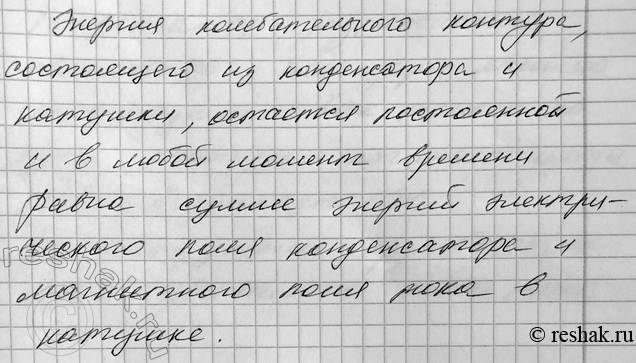 Энергия колебательного контура,
состоящего из конденсатора и
катушки, остается постоянной
и в любой момент времени
равна сумме энергий электри-
ческого поля конденсатора и
магнитного поля тока в
катушке.
reshak.ru
© reshak.ru